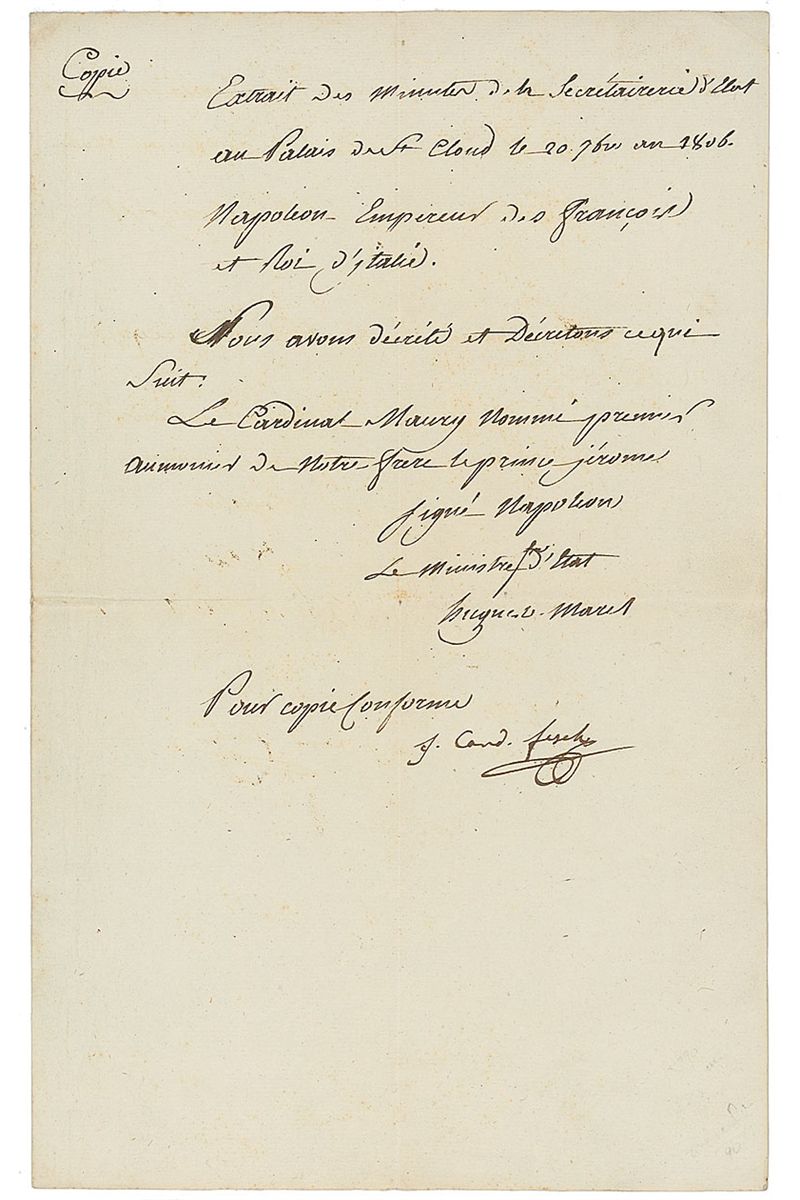 Copie
Extrait des Minutes de la Secrétairerie d'Etat
au Palais de St Cloud le 20. 7bre an 1806.
Napoleon Empereur des françois
et Roi d'jtalie.
Nous avons décrété et Décretons ce qui
Suit:
Le Cardinal Maury Nommé premier
aumonier de Notre frere le prince jérome
signé Napoleon
Le Ministre Sre d'Etat
hugues. Maret
Pour copie Conforme
j. Card. fesch